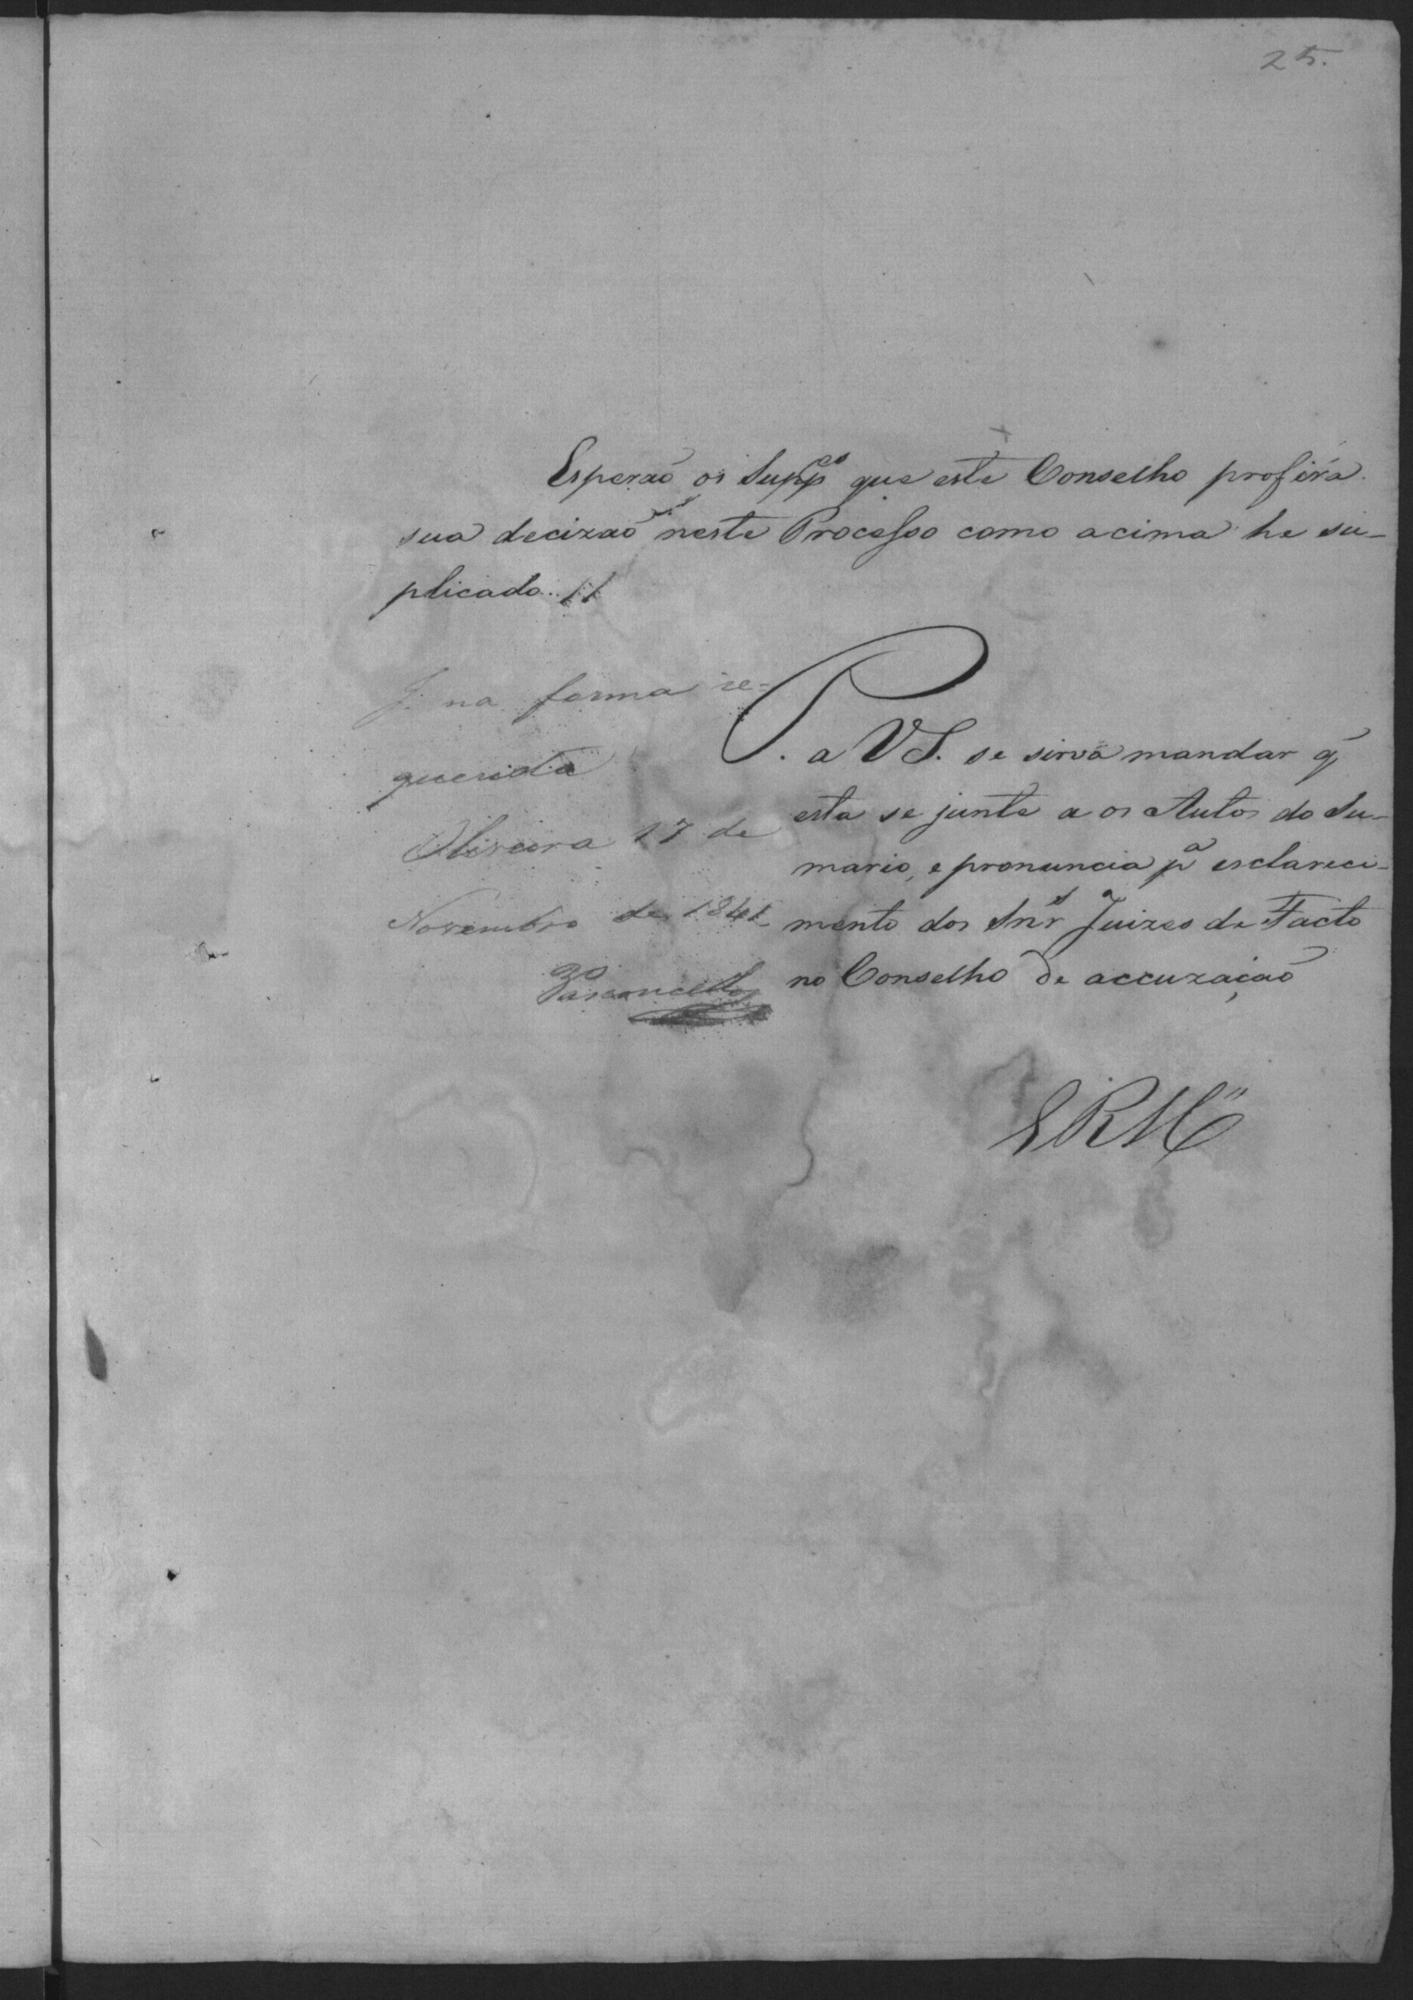 25.
Esperaõ os Supp.es que este Conselho profira
sua decizaõ neste Processo como acima he su-
plicado. //
J. na forma re-
querida
Oliveira 17 de
Novembro de 1841
Vasconcellos
P. a VS. se sirva mandar q̃
esta se junte a os Autos do Su-
mario, e pronuncia p.a esclareci-
mento dos Snr.s Juizes de Facto
no Conselho de accuzaçaõ
E R M.ce